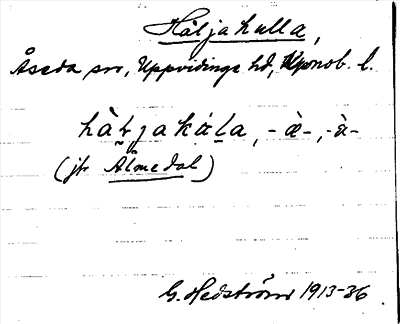 Häljakulla,
Åseda sn, Uppvidinge hd, Kronob. l.
hàljakála, -æ̀-, -à-
(jfr Älmedal)
G. Hedström 1913-36